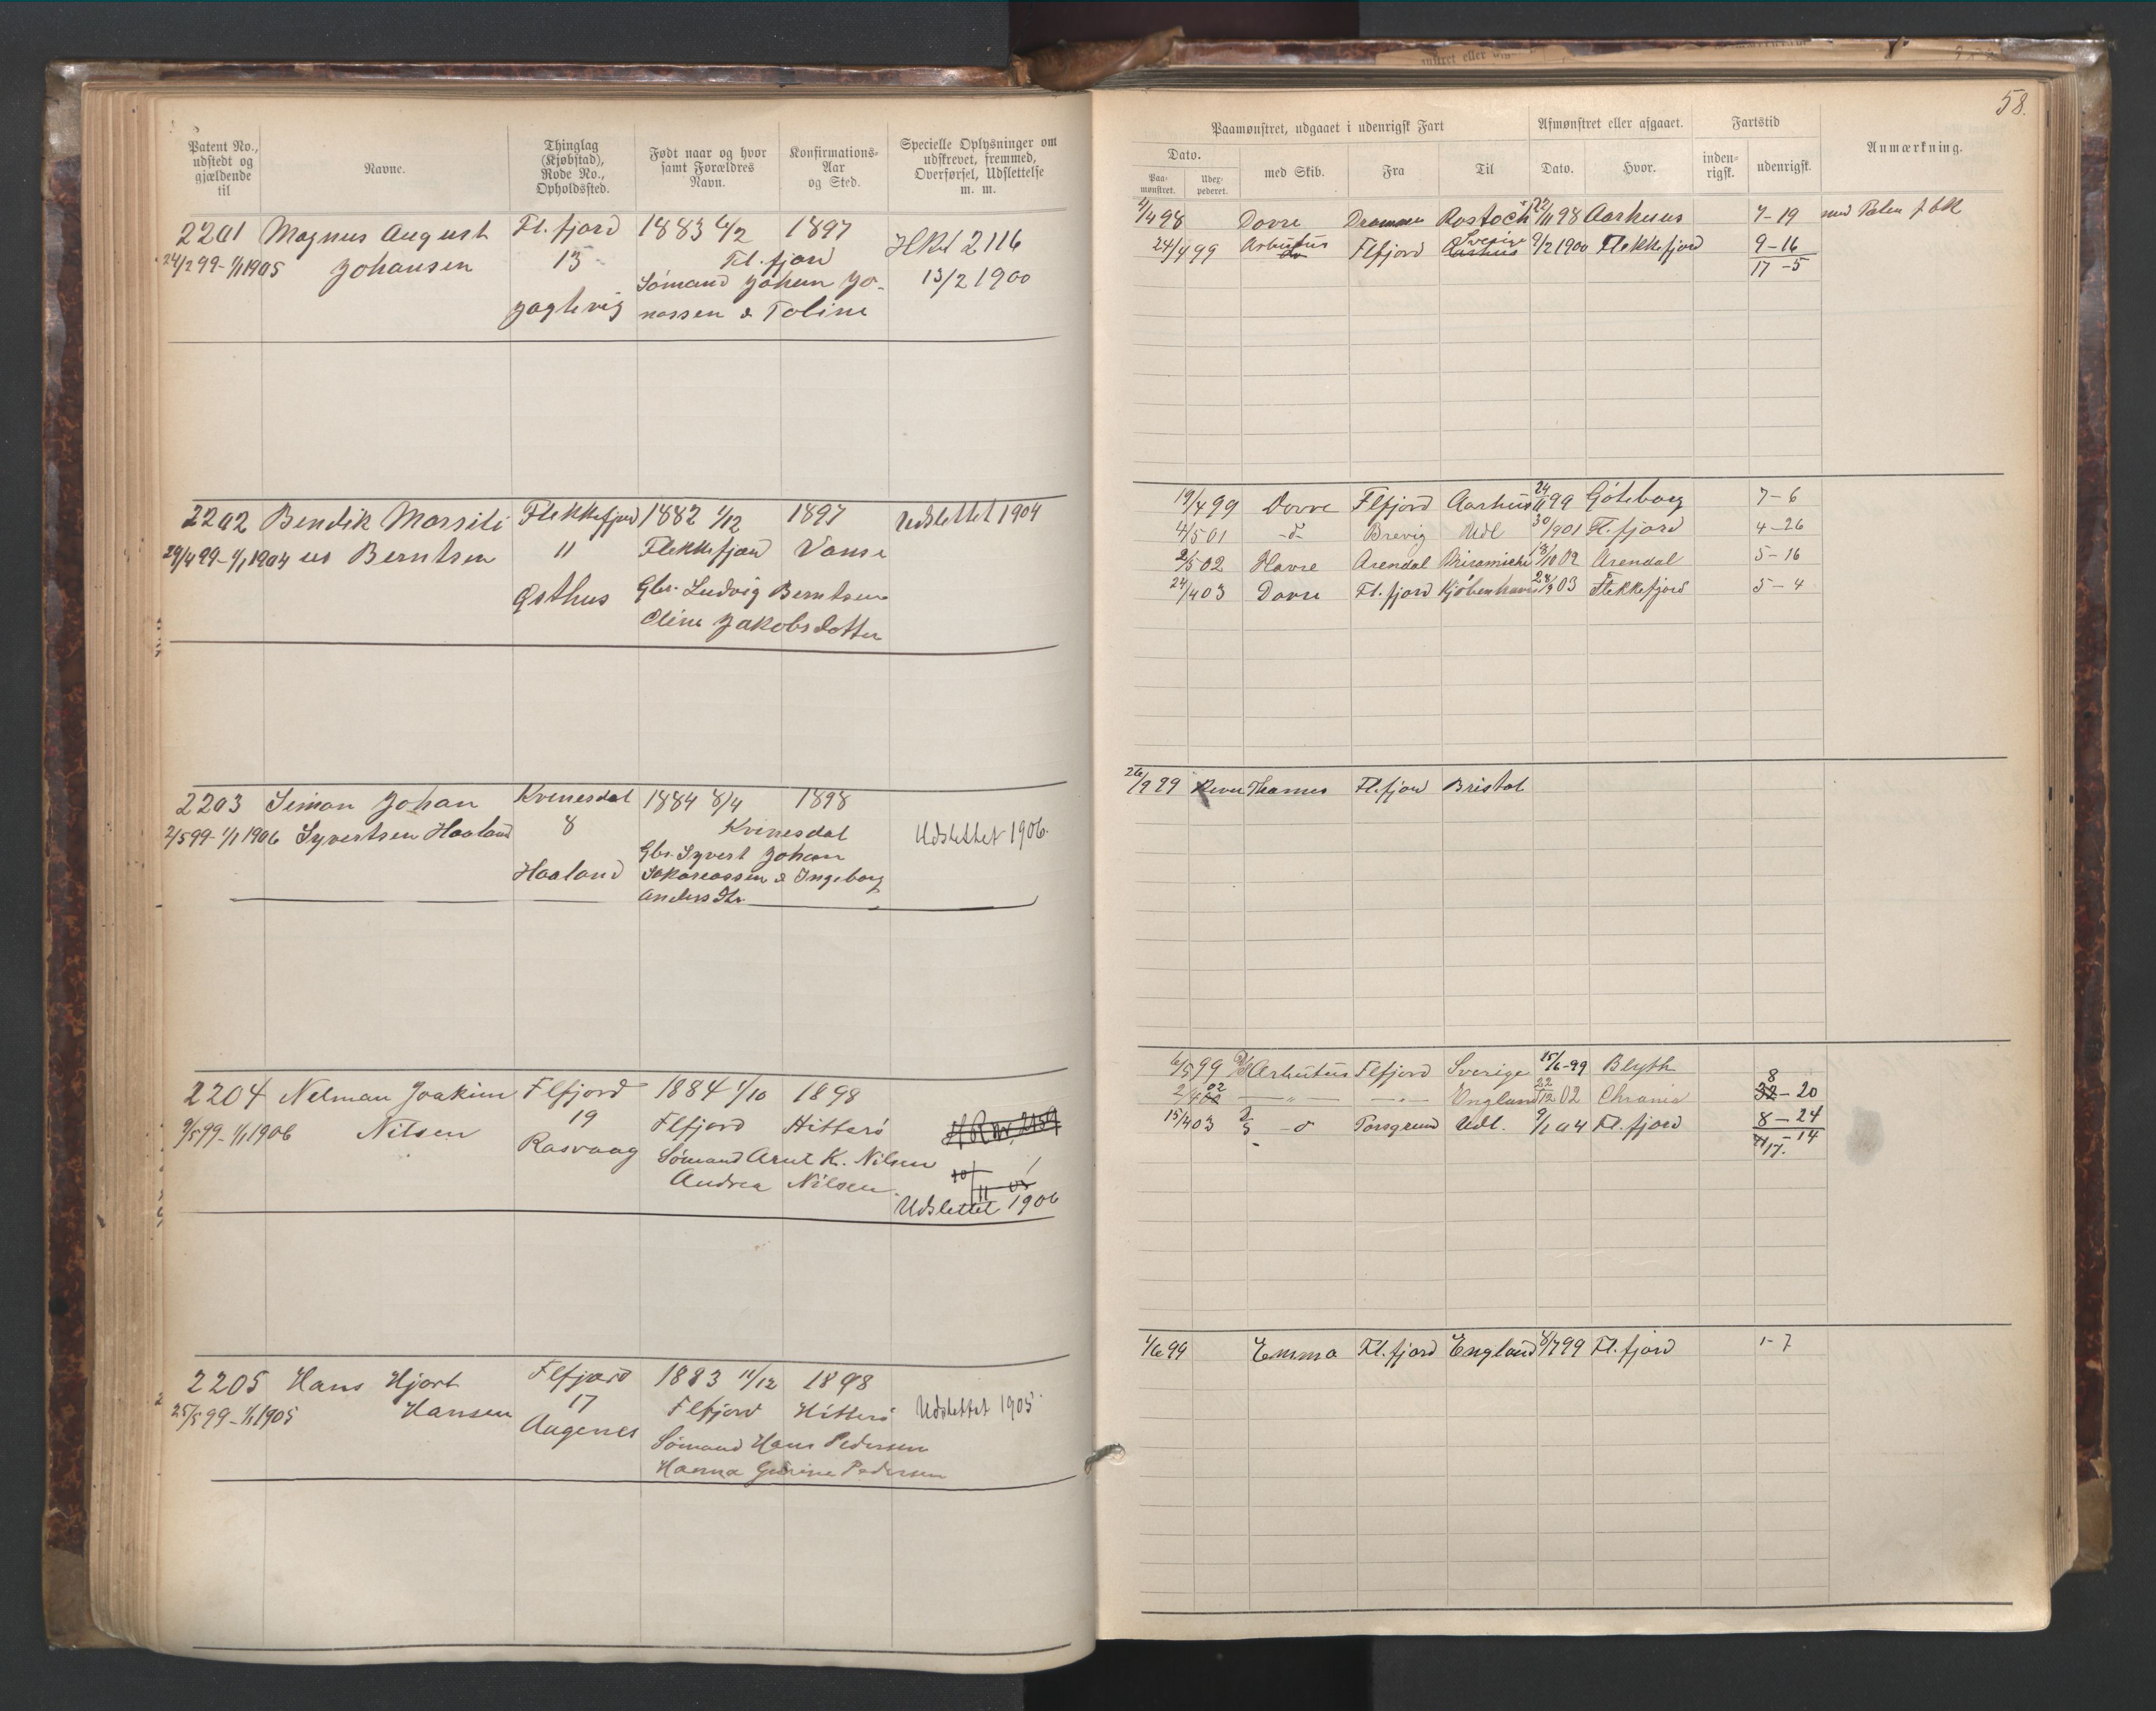 Patent No., udstedt og gjældende til
Navne.
Thinglag (Kjøbstad), Rode No., Opholdssted.
Født naar og hvor samt Forældres Navn.
Konfirmations-Aar og Sted.
Specielle Oplysninger om udskrevet, fremmed, Overførsel, Udslettelse m. m.
2201 Magnus August Fl.fjord 1883 6/2 1897 HRul 2116
24/2 99-1/1 1905 Johansen 13 Fl.fjord 13/2 1900
Sømand Johan Jo-
Jagtevig nassen & Toline
2202 Bendik Massili Flekkefjord 1882 1/12 1897 Udslettet 1904
29/4 99-1/1 1904 us Berntsen 11 Flekkefjord Vanse
Gbr. Ludvig Berntsen
Østhus
Oline Jakobsdatter
2203 Simon Johan Kvinesdal 1884 8/4 1898
2/5 99-1/1 1906 Syvertsen Haaland 8 Kvinesdal Udslettet 1906.
Gbr. Syvert Johan
Haaland Sakariassen & Ingeborg
Andersdtr.
2204 Nelman Joakim Flfjord 1884 1/10 1898
9/5 99-1/1 1906 Nilsen 19 Flfjord Hitterø
Rasvaag Sømand Arnt K. Nilsen
Andrea Nilsen
Udslettet 1906
2205 Hans Hjort Flfjord 1883 11/12 1898
25/5 99-1/1 1905 Hansen 17 Flfjord Hitterø Udslettet 1905
Augenes Sømand Hans Pedersen
Hanna Gurine Pedersen
58.
Paamønstret, udgaaet i udenrigsk Fart
Afmønstret eller afgaaet.
Fartstid
Anmærkning.
Dato.
Paa-mønstret.
Udex-pederet.
med Skib.
Fra
Til
Dato.
Hvor.
inden-rigsk.
udenrigsk.
2/4 98 Dovre Drammen Rostock 22/11 98 Aarhuus 7-19
24/4 99 Arbutus Flfjord Sverige 9/2 1900 Flekkefjord 9-16
17-5
19/4 99 Dovre Flfjord Aarhus 24/11 99 Göteborg 7-6
4/5 01 -d- Brevig Udl 30/9 01 Fl.fjord 4-26
2/5 02 Havre Arendal Miramichi 18/10 02 Arendal 5-16
24/4 03 Dovre Fl.fjord Kjøbenhavn 28/9 03 Flekkefjord 5-4
26/9 99 River Thames Fl.fjord Bristol
6/5 99 Arbutus Flfjord Sverige 25/6-99 Blyth
2/4 02 -"- -"- England 22/12 02 Chrania 8-20
15/4 03 Porsgrund Udl. 9/1 04 Fl.fjord 8-24
17-14
1/6 99 Emma Fl.fjord England 8/7 99 Fl.fjord 1-7